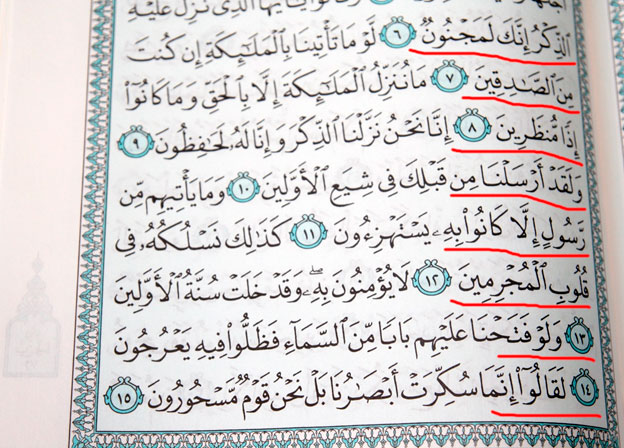 وَقَالُوا۟ يَـٰٓأَيُّهَا ٱلَّذِى نُزِّلَ عَلَيْهِ
ٱلذِّكْرُ إِنَّكَ لَمَجْنُونٌ ٦ لَّوْ مَا تَأْتِينَا بِٱلْمَلَـٰٓئِكَةِ إِن كُنتَ
مِنَ ٱلصَّـٰدِقِينَ ٧ مَا نُنَزِّلُ ٱلْمَلَـٰٓئِكَةَ إِلَّا بِٱلْحَقِّ وَمَا كَانُوٓا۟
إِذًا مُّنظَرِينَ ٨ إِنَّا نَحْنُ نَزَّلْنَا ٱلذِّكْرَ وَإِنَّا لَهُۥ لَحَـٰفِظُونَ ٩
وَلَقَدْ أَرْسَلْنَا مِن قَبْلِكَ فِى شِيَعِ ٱلْأَوَّلِينَ ١٠ وَمَا يَأْتِيهِم مِّن
رَّسُولٍ إِلَّا كَانُوا۟ بِهِۦ يَسْتَهْزِءُونَ ١١ كَذَٰلِكَ نَسْلُكُهُۥ فِى
قُلُوبِ ٱلْمُجْرِمِينَ ١٢ لَا يُؤْمِنُونَ بِهِۦ ۖ وَقَدْ خَلَتْ سُنَّةُ ٱلْأَوَّلِينَ
١٣ وَلَوْ فَتَحْنَا عَلَيْهِم بَابًا مِّنَ ٱلسَّمَآءِ فَظَلُّوا۟ فِيهِ يَعْرُجُونَ
١٤ لَقَالُوٓا۟ إِنَّمَا سُكِّرَتْ أَبْصَـٰرُنَا بَلْ نَحْنُ قَوْمٌ مَّسْحُورُونَ ١٥